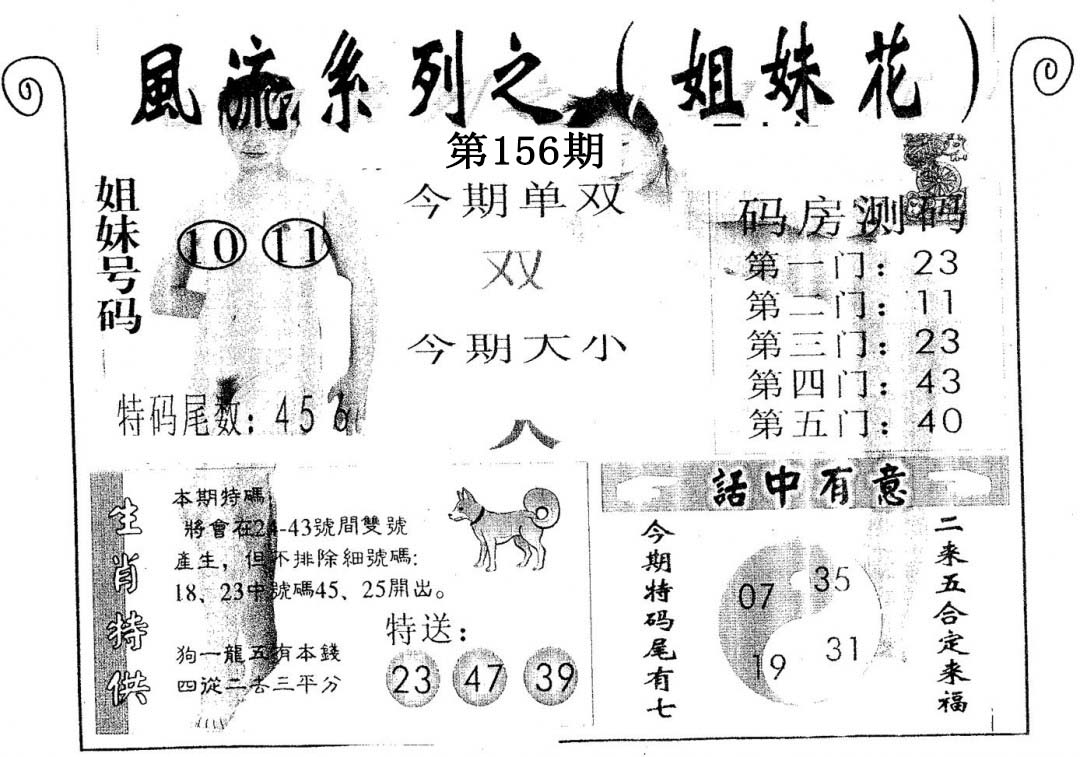 風流系列之（姐妹花）
第156期
姐妹号码
10 11
特码尾数：456
今期单双
双
今期大小
码房测码
第一门：23
第二门：11
第三门：23
第四门：43
第五门：40
生肖特供
本期特碼：
將會在24-43號間雙號
產生，但不排除細號碼：
18、23中號碼45、25開出。
狗一龍五有本錢
四從二去三平分
特送：
23 47 39
話中有意
今期特码尾有七
07 35
19 31
二来五合定来福